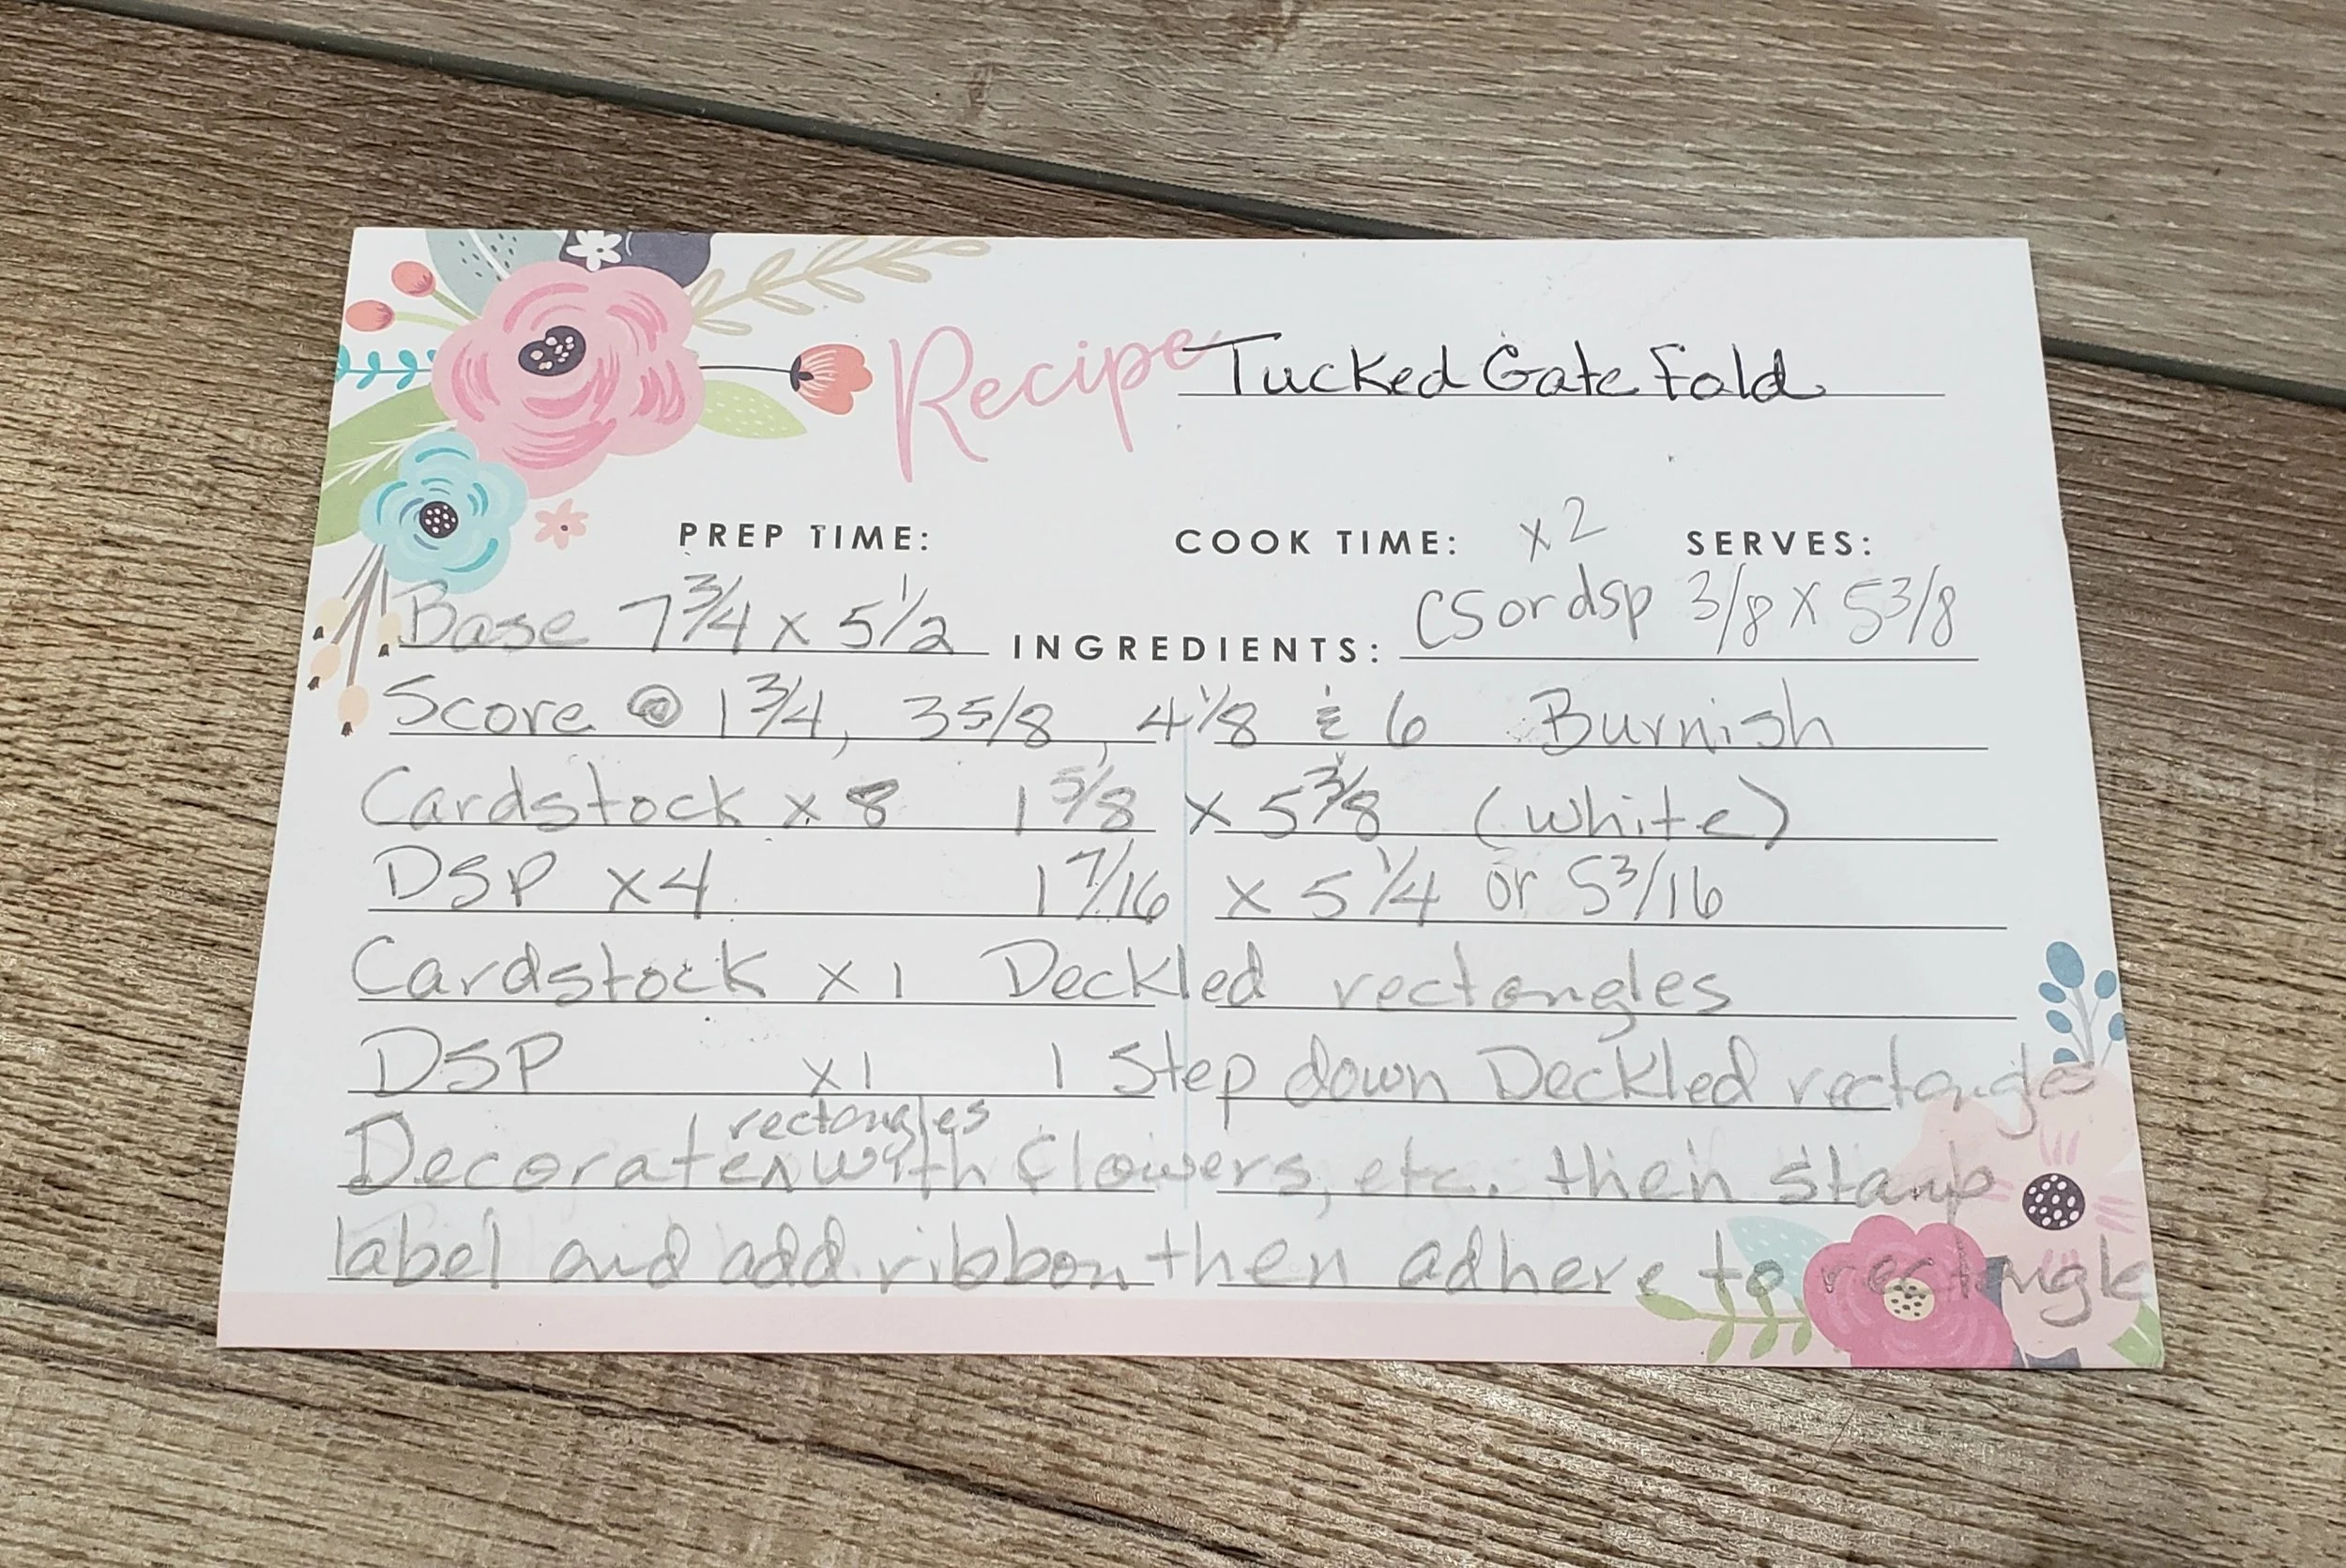 Recipe Tucked Gate Fold
PREP TIME: COOK TIME: x2 SERVES:
Base 7 3/4 x 5 1/2 INGREDIENTS: CS or dsp 3/8 x 5 3/8
Score @ 1 3/4, 3 5/8, 4 1/8 & 6 Burnish
Cardstock x 8 1 5/8 x 5 3/8 (white)
DSP x4 1 7/16 x 5 1/4 or 5 3/16
Cardstock x 1 Deckled rectangles
DSP x1 1 Step down Deckled rectangle
rectangles
Decorate ^ with flowers, etc. then stamp
label and add ribbon then adhere to rectangle